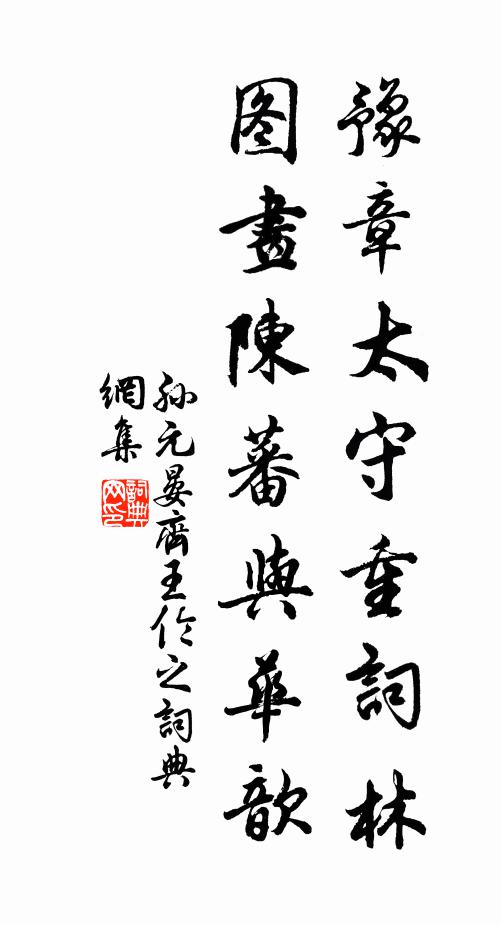 豫章太守重詞林
图畫陳蕃與華歆
孫元晏齊王伦之詞典
網集
詞典
网印